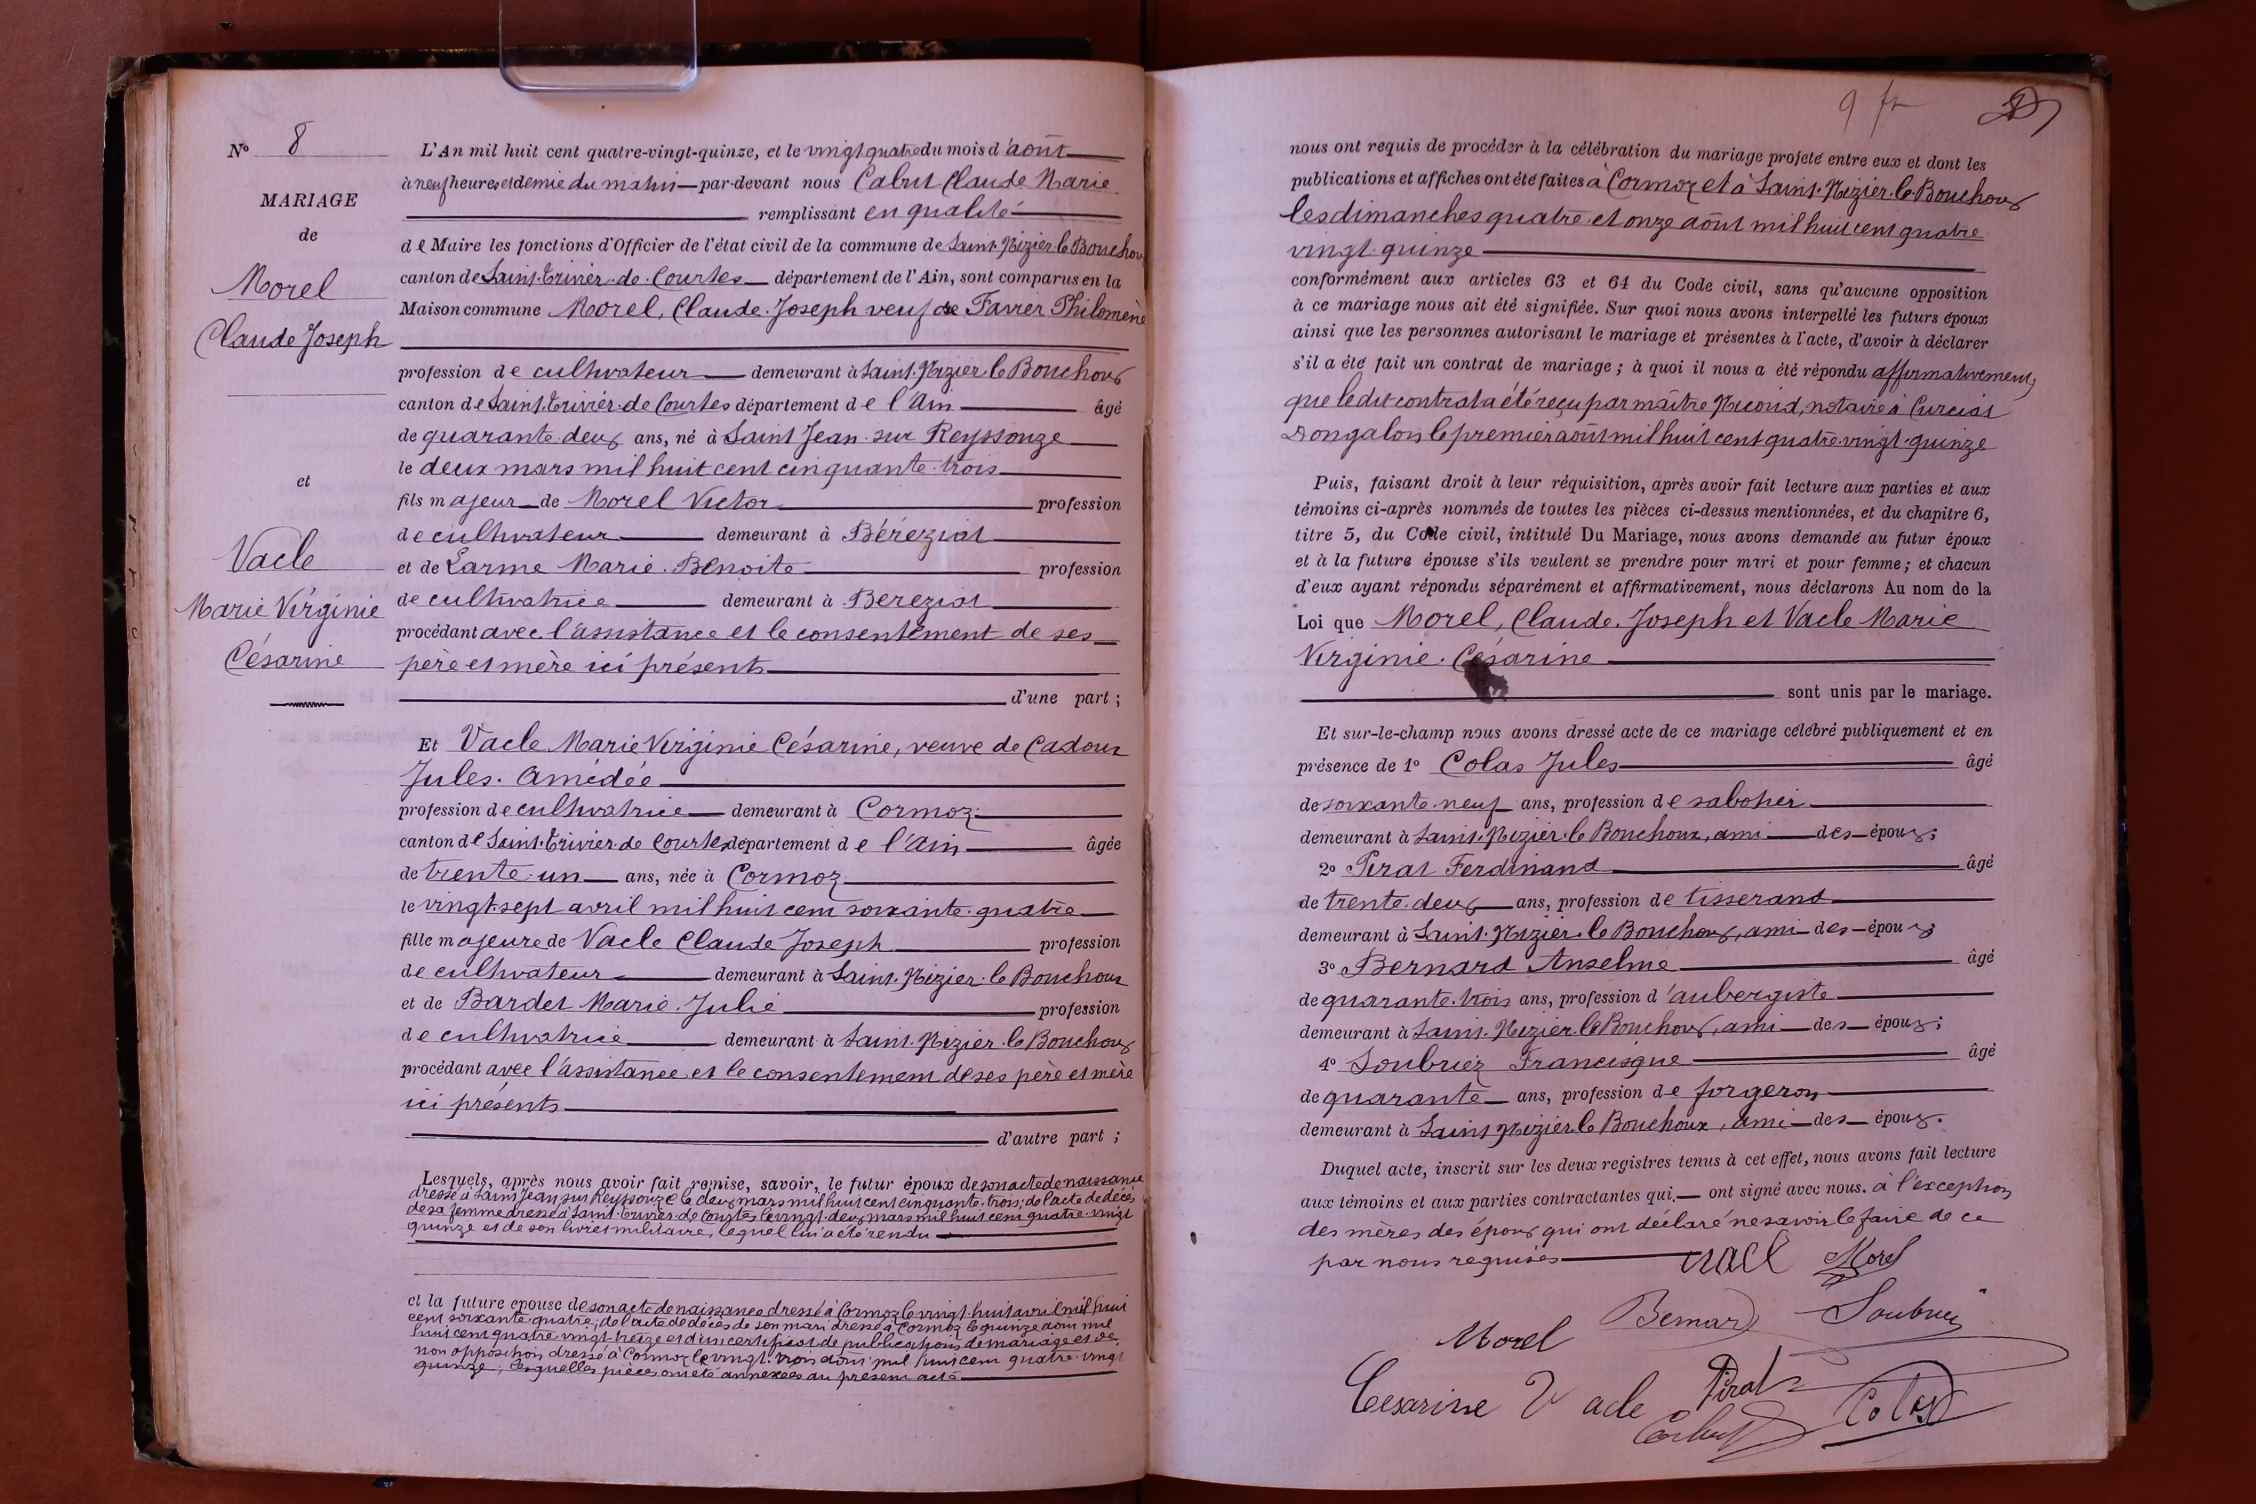 N° 8
MARIAGE
de
Morel
Claude Joseph
et
Vacle
Marie Virginie
Césarine
L'An mil huit cent quatre-vingt-quinze, et le vingt quatre du mois d'août
à neuf heures et demie du matin par-devant nous Cabut Claude Marie
remplissant en qualité
de Maire les fonctions d'Officier de l'état civil de la commune de Saint-Nizier-le-Bouchoux
canton de Saint-Trivier-de-Courtes département de l'Ain, sont comparus en la
Maison commune Morel, Claude-Joseph veuf de Favrer Philomène
profession de cultivateur demeurant à Saint-Nizier le Bouchoux
canton de Saint-Trivier-de Courtes département de l'Ain âgé
de quarante-deux ans, né à Saint Jean-sur Reyssouze
le deux mars mil huit cent cinquante-trois
fils majeur de Morel Victor profession
de cultivateur demeurant à Béréziat
et de Larme Marie-Benoite profession
de cultivatrice demeurant à Béréziat
procédant avec l'assistance et le consentement de ses
père et mère ici présents
d'une part ;
Et Vacle Marie Virginie Césarine, veuve de Cadoux
Jules-Amédée
profession de cultivatrice demeurant à Cormoz
canton de Saint-Trivier-de Courtes département de l'Ain âgée
de trente-un ans, née à Cormoz
le vingt-sept avril mil huit cent soixante-quatre
fille majeure de Vacle Claude Joseph profession
de cultivateur demeurant à Saint-Nizier-le Bouchoux
et de Bardet Marie-Julie profession
de cultivatrice demeurant à Saint-Nizier-le Bouchoux
procédant avec l'assistance et le consentement de ses père et mère
ici présents
d'autre part ;
Lesquels, après nous avoir fait remise, savoir, le futur époux de son acte de naissance
dressé à Saint Jean sur Reyssouze le deux mars mil huit cent cinquante-trois; de l'acte de décès
de sa femme dressé à Saint-Trivier-de Courtes le vingt-deux mars mil huit cent quatre-vingt
quinze et de son livret militaire, lequel lui a été rendu
et la future épouse de son acte de naissance dressé à Cormoz le vingt-huit avril mil huit
cent soixante quatre; de l'acte de décès de son mari dressé à Cormoz le quinze août mil
huit cent quatre-vingt-treize et d'un certificat de publications de mariage et de
non opposition dressé à Cormoz le vingt-trois août mil huit cent quatre-vingt
quinze; lesquelles pièces ont été annexées au présent acte
9 fr
nous ont requis de procéder à la célébration du mariage projeté entre eux et dont les
publications et affiches ont été faites à Cormoz et à Saint-Nizier-le-Bouchoux
les dimanches quatre et onze août mil huit cent quatre
vingt-quinze
conformément aux articles 63 et 64 du Code civil, sans qu'aucune opposition
à ce mariage nous ait été signifiée. Sur quoi nous avons interpellé les futurs époux
ainsi que les personnes autorisant le mariage et présentes à l'acte, d'avoir à déclarer
s'il a été fait un contrat de mariage ; à quoi il nous a été répondu affirmativement,
que le dit contrat a été reçu par maître Picoud, notaire à Curciat
Dongalon le premier août mil huit cent quatre-vingt-quinze
Puis, faisant droit à leur réquisition, après avoir fait lecture aux parties et aux
témoins ci-après nommés de toutes les pièces ci-dessus mentionnées, et du chapitre 6,
titre 5, du Code civil, intitulé Du Mariage, nous avons demandé au futur époux
et à la future épouse s'ils veulent se prendre pour mari et pour femme ; et chacun
d'eux ayant répondu séparément et affirmativement, nous déclarons Au nom de la
Loi que Morel, Claude-Joseph et Vacle Marie
Virginie-Césarine
sont unis par le mariage.
Et sur-le-champ nous avons dressé acte de ce mariage célébré publiquement et en
présence de 1° Colas Jules âgé
de soixante-neuf ans, profession de sabotier
demeurant à Saint-Nizier-le Bouchoux, ami des époux;
2° Pirat Ferdinand âgé
de trente-deux ans, profession de tisserand
demeurant à Saint-Nizier-le Bouchoux, ami des époux
3° Bernard Anselme âgé
de quarante-trois ans, profession d'aubergiste
demeurant à Saint-Nizier-le Bouchoux, ami des époux;
4° Soubriez Francisque âgé
de quarante ans, profession de forgeron
demeurant à Saint Nizier le Bouchoux, ami des époux.
Duquel acte, inscrit sur les deux registres tenus à cet effet, nous avons fait lecture
aux témoins et aux parties contractantes qui ont signé avec nous. à l'exception
des mères des époux qui ont déclaré ne savoir le faire de ce
par nous requises
vacle Morel
Bernard Soubriez
Morel
Cesarine Vacle Pirat
Cabut Colas